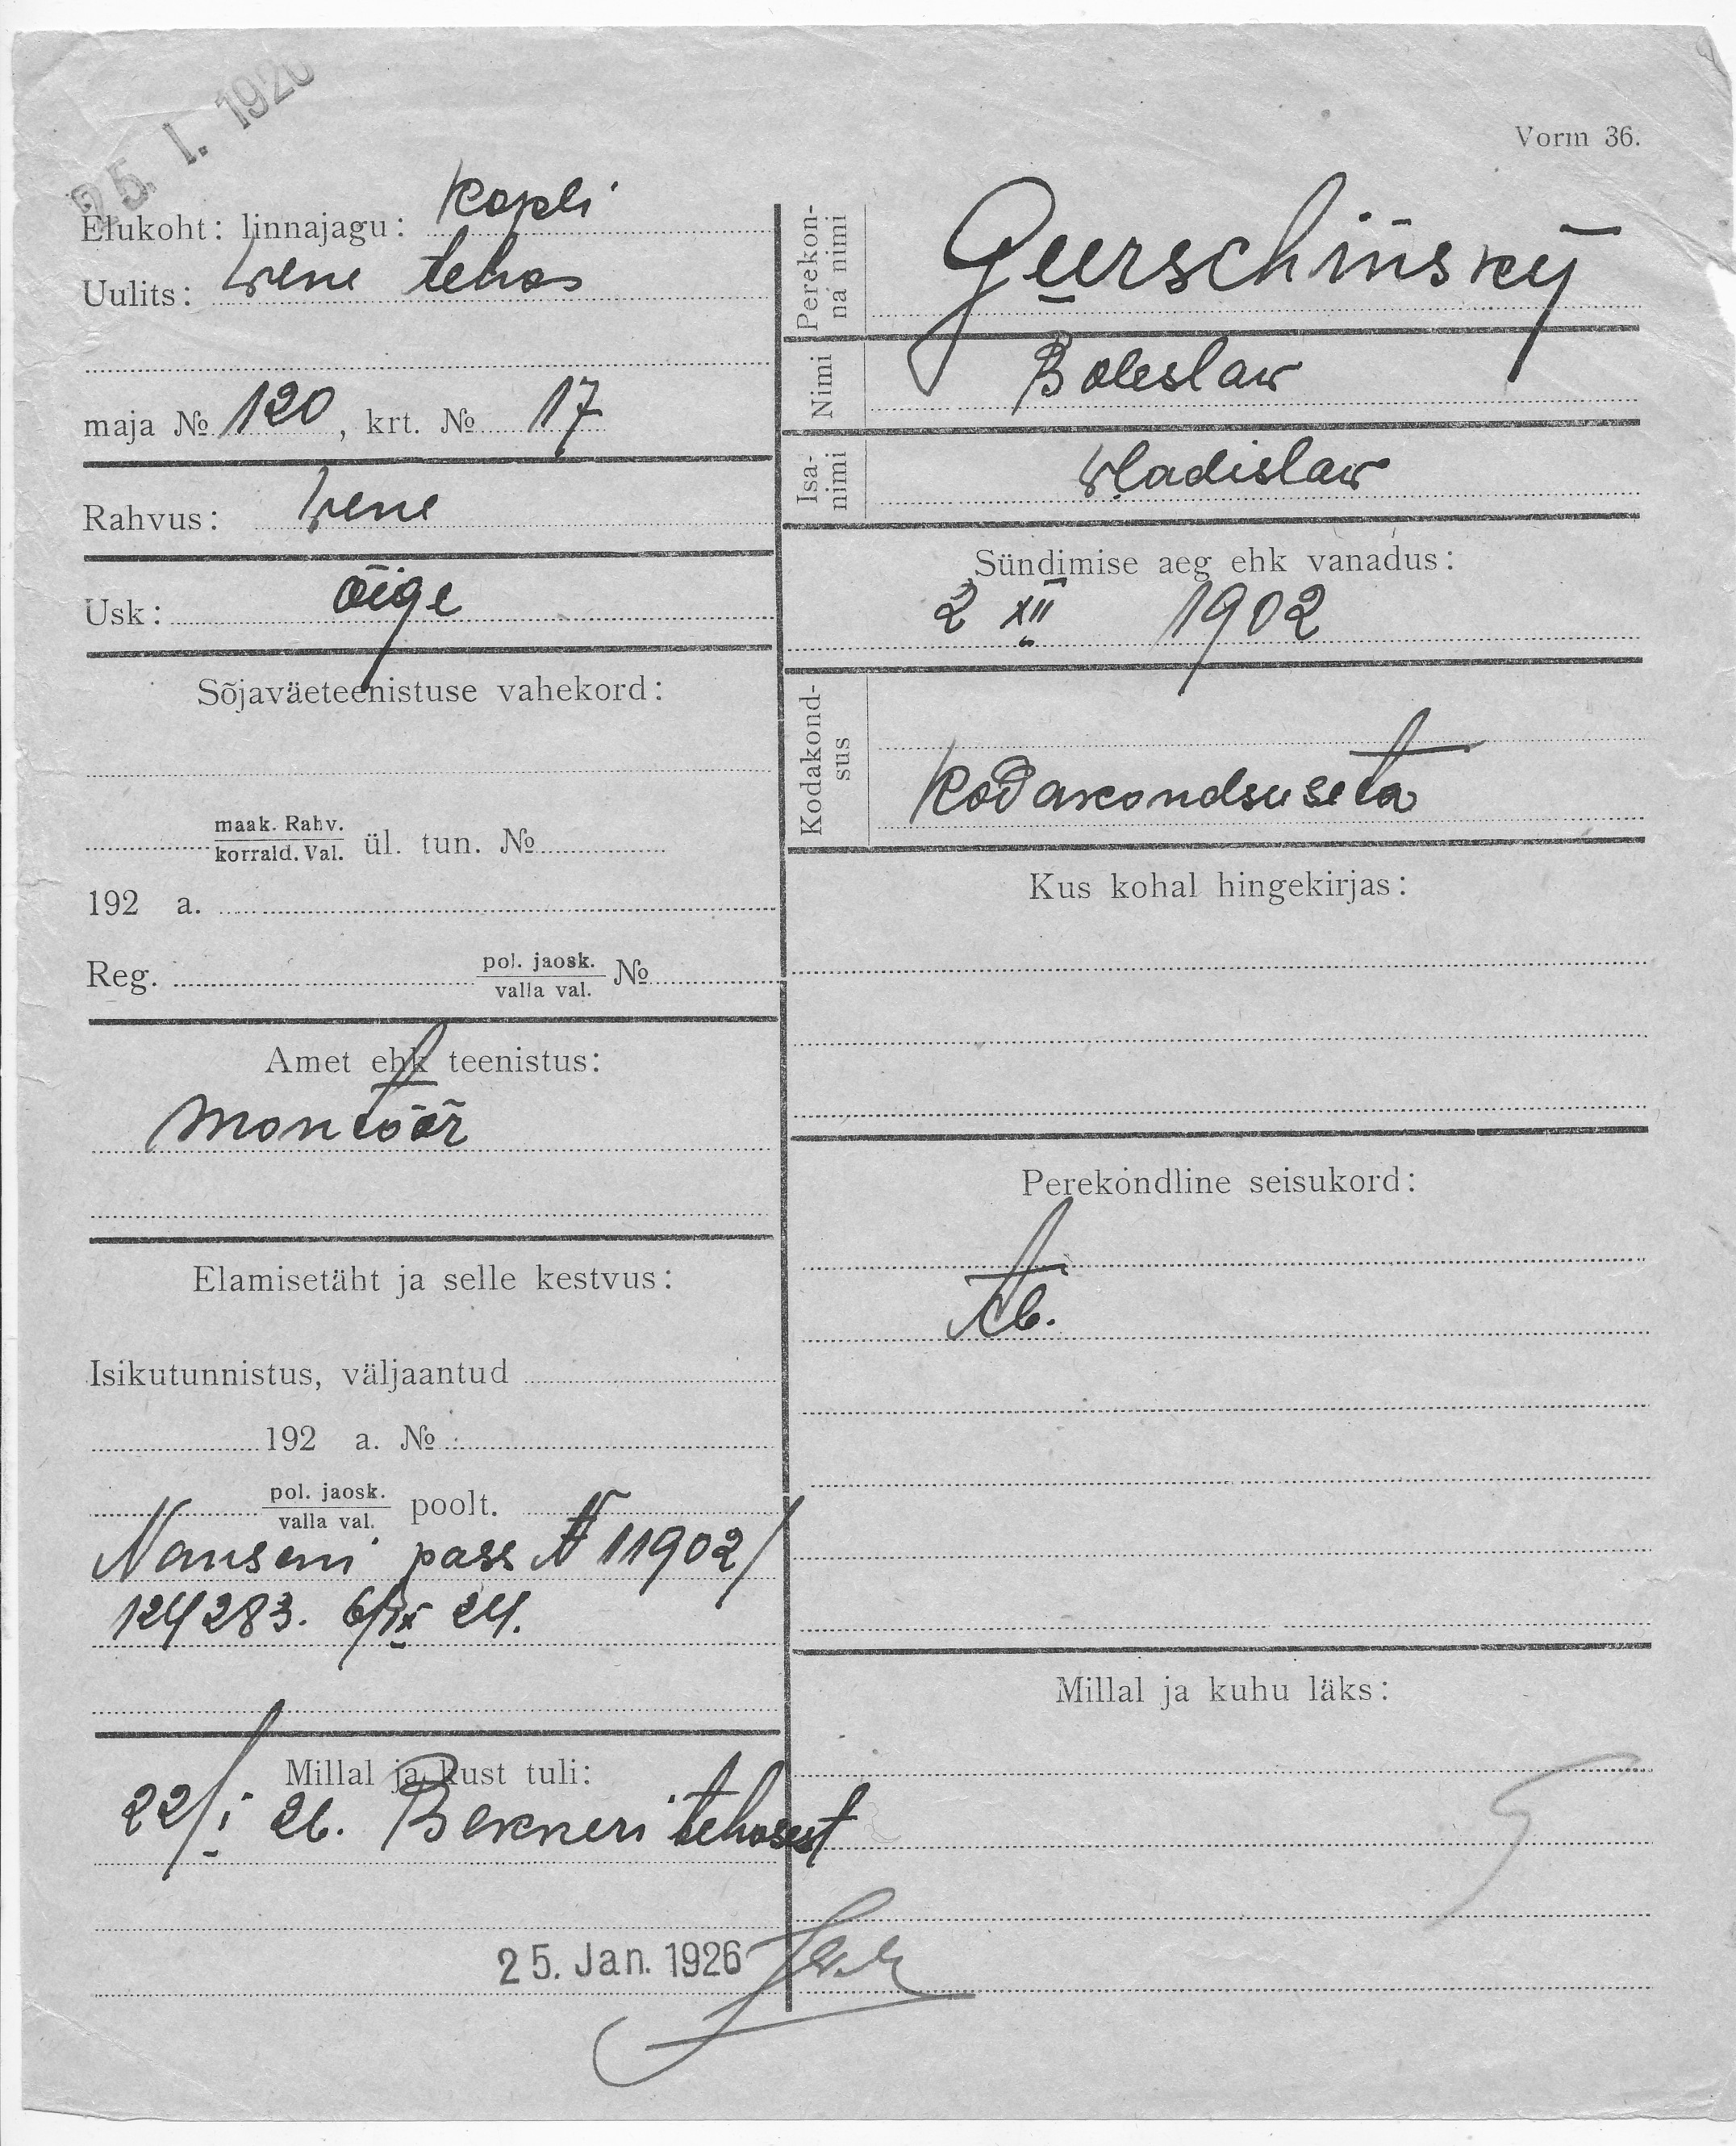 25. I. 1926
Vorm 36.
Elukoht: linnajagu: Kopli
Uulits: Wene tehas
maja № 120, krt. № 17
Rahvus: Wene
Usk: õige
Sõjaväeteenistuse vahekord:
maak. Rahv.
korrald. Val. ül. tun. №
192 a.
Reg. pol. jaosk.
valla val. №
Amet ehk teenistus:
Montöör
Elamisetäht ja selle kestvus:
Isikutunnistus, väljaantud
192 a. №
pol. jaosk.
valla val. poolt.
Nanseni pass N 11902/
124283. 6/IX 24.
Millal ja kust tuli:
22/I 26. Bekkeri tehasest
25. Jan. 1926
Perekon-
na nimi
Gurschinsky
Nimi Boleslaw
Isa-
nimi Wladislaw
Sündimise aeg ehk vanadus:
2 XII 1902
Kodakond-
sus
Kodakondsuseta
Kus kohal hingekirjas:
Perekondline seisukord:
Millal ja kuhu läks: